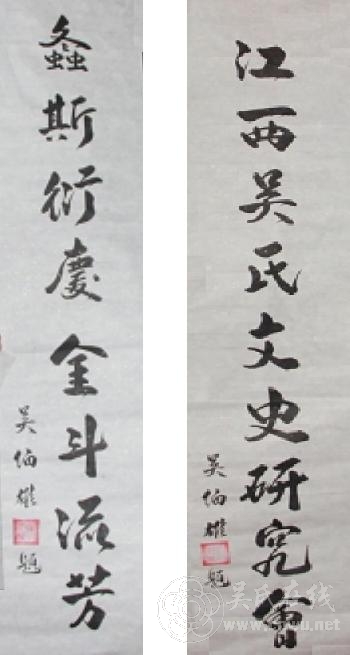 江西吳氏文史研究會
吳伯雄題
螽斯衍慶金斗流芳
吳伯雄題
吴氏在线